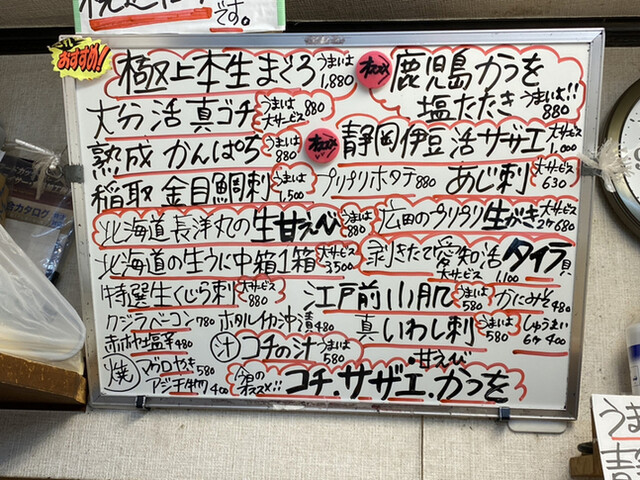 です。
おすすめ!
極上本生まぐろ うまいは 1,880
オススメ 鹿児島かつを塩たたき うまいは!! 880
大分活真ゴチ うまいは 大サービス 880
熟成かんぱち うまいは 880
静岡伊豆活サザエ 大サービス 1,000
稲取金目鯛刺 うまいは 1,500
プリプリホタテ 880
あじ刺 大サービス 630
北海道長洋丸の生甘えび うまいは 880
広田のプリプリ生がき 大サービス 2ケ 680
北海道の生うに中箱1箱 大サービス 3,500
剥きたて愛知活タイラ貝 大サービス 1,100
特選生くじら刺 大サービス 880
江戸前小川 うまいは 580
かにみそ 480
クジラベーコン 780
ホタルイカ沖漬 480
真いわし刺 うまいは 580
しゅうまい 6ケ 400
赤ホヤ塩辛 480
汁 コチの汁 うまいは 580
焼 580
アジ 400
オススメ!! コチ.サザエ.甘えび.かつを
うま